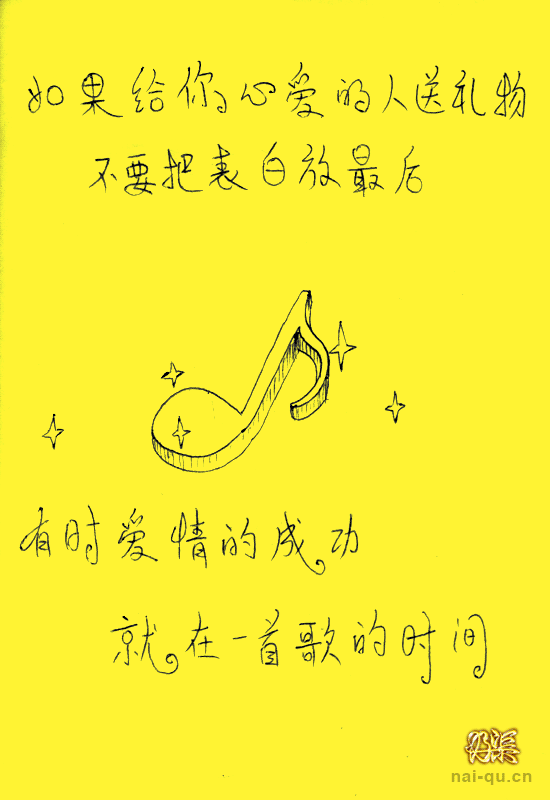 如果给你心爱的人送礼物
不要把表白放最后
有时爱情的成功
就在一首歌的时间
奶渠
nai-qu.cn